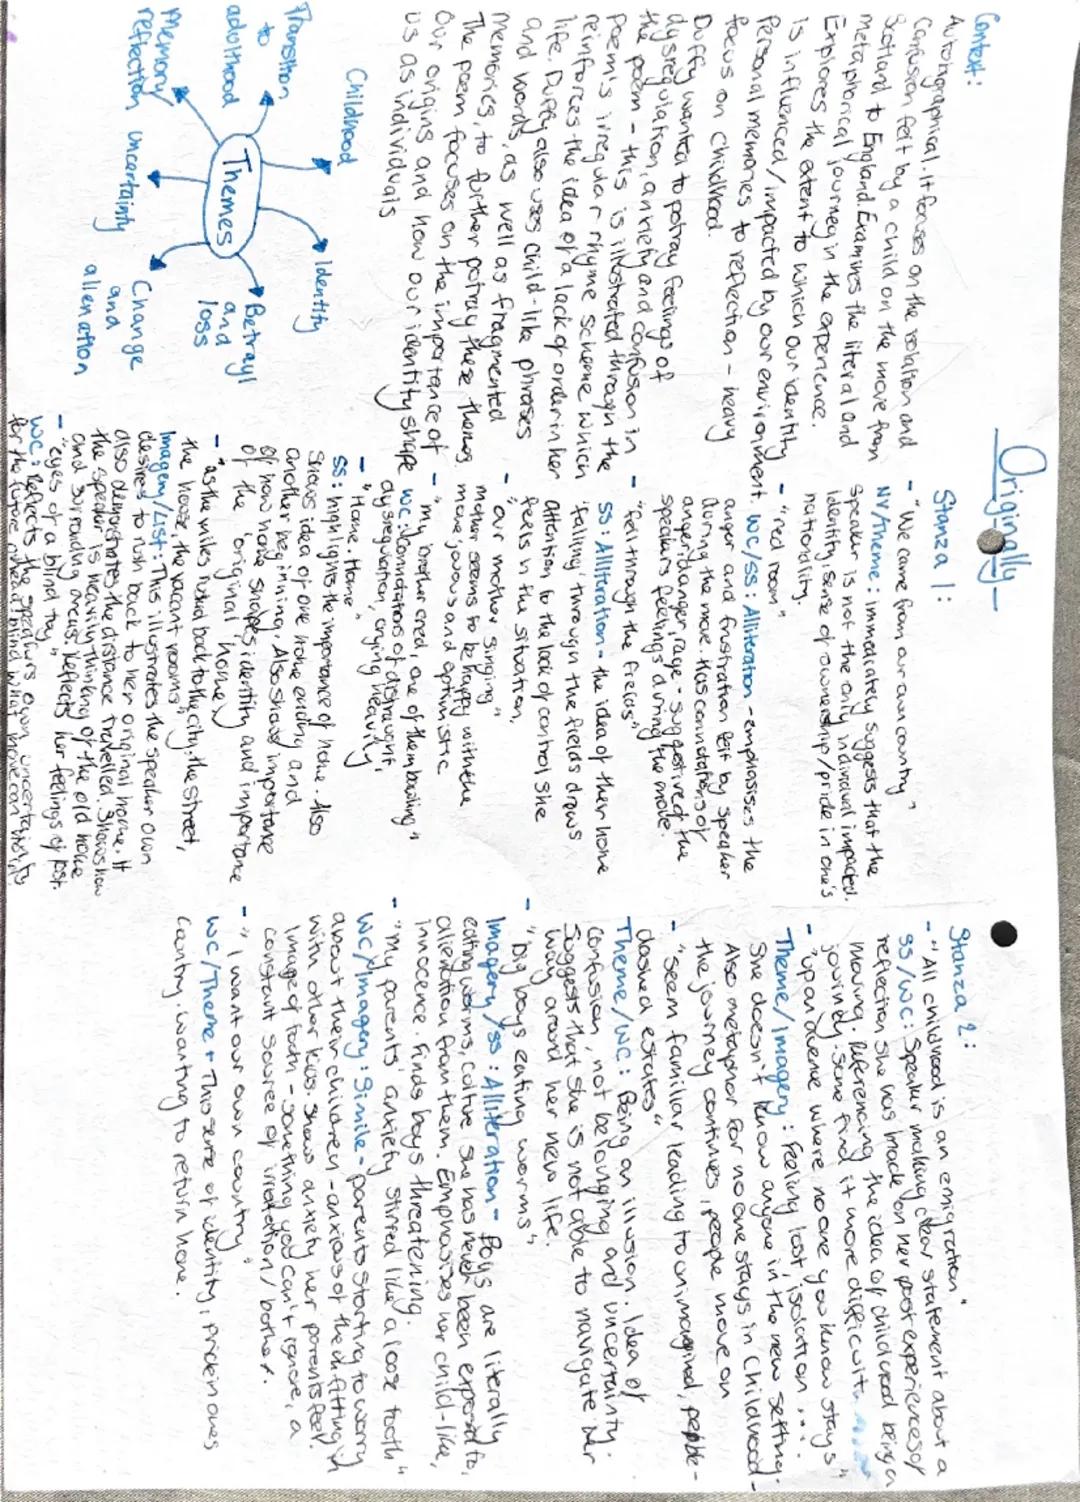 Originally
Context:
Autobiographical. It focuses on the isolation and
Confusion felt by a child on the move from
Scotland to England. Examines the literal and
metaphorical journey in the experience.
Explores the extent to which our identity
is influenced/impacted by our environment.
Personal memories to reflection - heavy
focus on childhood.
Duffy wanted to potray feelings of
dysregulation, anxiety and confusion in
the poem - this is illustrated through the
poem's irregular rhyme scheme which
reinforces the idea of a lack of order in her
life. Duffy also uses child-like phrases
and words, as well as fragmented
memories, to further potray these themes.
The poem focuses on the importance of
our origins and how our identity shape
us as individuals
Themes
Childhood
Identity
Betrayl
and
loss
Change
and
alienation
uncertainty
Memory/
reflection
Transition
to
adulthood
Stanza 1:
- "We came from our own country"
NV/Theme: immediately suggests that the
speaker is not the only individual impacted.
Identity, sense of ownership/pride in one's
nationality.
- "red room"
WC/SS: Alliteration - emphasises the
anger and frustration felt by speaker
during the move. Has connotations of
anger, danger, rage - suggestive of the
speakers feelings during the move
- "fell through the fields"
SS: Alliteration - the idea of their home
'falling' through the fields draws
attention to the lack of control she
feels in the situation.
- "our mother singing"
mother seems to be happy with the
move, joyous and optimistic
- "my brother cried, one of them bawling"
WC: connotations of distraught,
dysregulation, crying heavily
- "Home. Home"
SS: highlights the importance of home. Also
shows idea of one home ending and
another beginning. Also shows importance
of how home shapes identity and importance
of the 'original' home
- "as the miles rushed back to the city, the street,
the house, the vacant rooms"
Imagery/List: This illustrates the speaker own
desires to rush back to her original home. It
also demonstrates the distance travelled. Shows how
the speaker is heavily thinking of the old home
and surrounding areas. Reflects her feelings of lost.
- "eyes of a blind toy"
WC: Reflects the speakers own uncertainty
for the future ahead. blind what move can
Stanza 2:
- "All childhood is an emigration"
SS/WC: Speaker making clear statement about a
reflection she has made on her past experiences of
moving. Referencing the idea of childhood being a
journey: some find it more difficult
- "up an avenue where no one you know stays"
Theme/Imagery: Feeling lost, isolation ...
She doesn't know anyone in the new setting.
Also metaphor for no one stays in Childhood -
the journey continues, people move on
- "seem familiar, leading to unimagined, pebble-
dashed estates"
Theme/WC: Being an illusion. Idea of
confusion, not belonging and uncertainty.
Suggests that she is not able to navigate her
way around her new life.
- "Big boys eating worms"
Imagery/SS: Alliteration - Boys are literally
eating worms, culture she has never been exposed to,
alienation from them. Emphasises her child-like,
innocence. Finds boys threatening.
- "My parents' anxiety stirred like a loose tooth"
WC/Imagery: Simile - parents starting to worry
about their children - anxious of them fitting in
with other kids. Shows anxiety her parents feel.
Image of tooth - something you can't ignore, a
constant source of irritation/bother.
- "I want our own country"
WC/Theme + This sense of identity, pride in ones
country, wanting to return home.